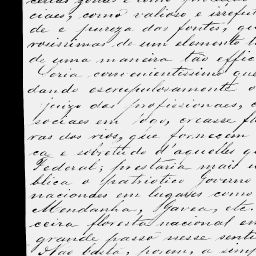 ciaes, como valioso e irrefut
de e pureza das fontes, qu
rosissimas de um elemento t
de uma maneira tão effic
Seria convenientissimo que
dando escrupulosamente o
juizo dos profissionaes, c
sociaes em voga, creasse fl
ras dos rios, que fornecem
ca e sobretudo d'aquelles q
Federal; prestaria mais u
blica o patriotico Governo
nacionaes em lugares como
Mendanha, Gavea, etc.
ceira floresta nacional em
grande passo nesse senti
Não basta, porem, a simp